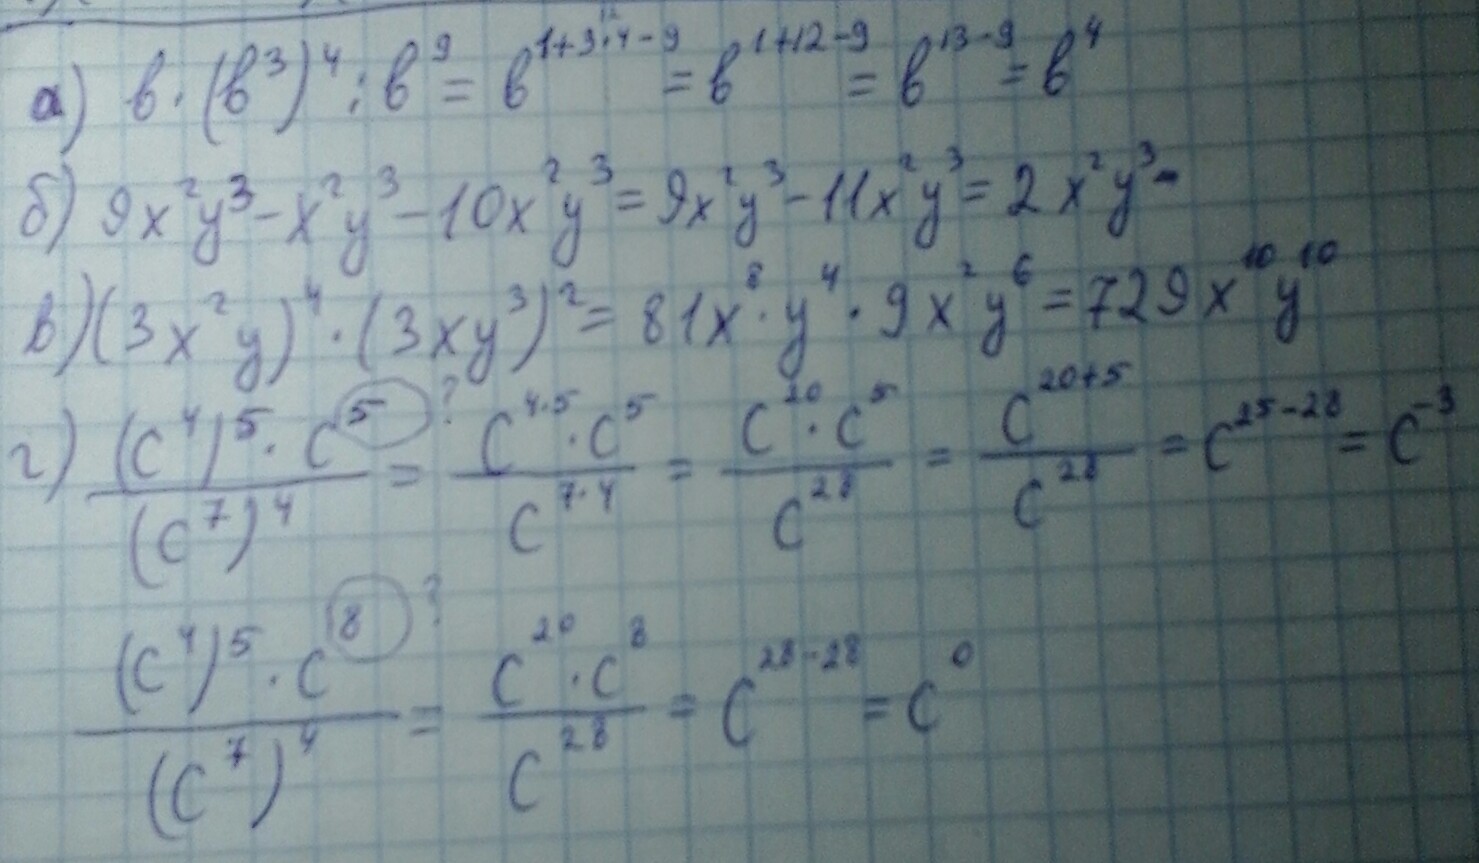 а) b·(b³)⁴:b⁹ = b^(1+3·4-9) = b^(1+12-9) = b^(13-9) = b⁴
б) 9x²y³-x²y³-10x²y³ = 9x²y³-11x²y³ = 2x²y³-
в) (3x²y)⁴·(3xy³)² = 81x⁸·y⁴·9x²y⁶ = 729x¹⁰y¹⁰
г) ((c⁴)⁵·c⁵)/((c⁷)⁴) ? = (c^(4·5)·c⁵)/(c^(7·4)) = (c²⁰·c⁵)/(c²⁸) = (c^(20+5))/(c²⁸) = c^(25-28) = c⁻³
((c⁴)⁵·c⁸)/((c⁷)⁴) ? = (c²⁰·c⁸)/(c²⁸) = c^(28-28) = c⁰